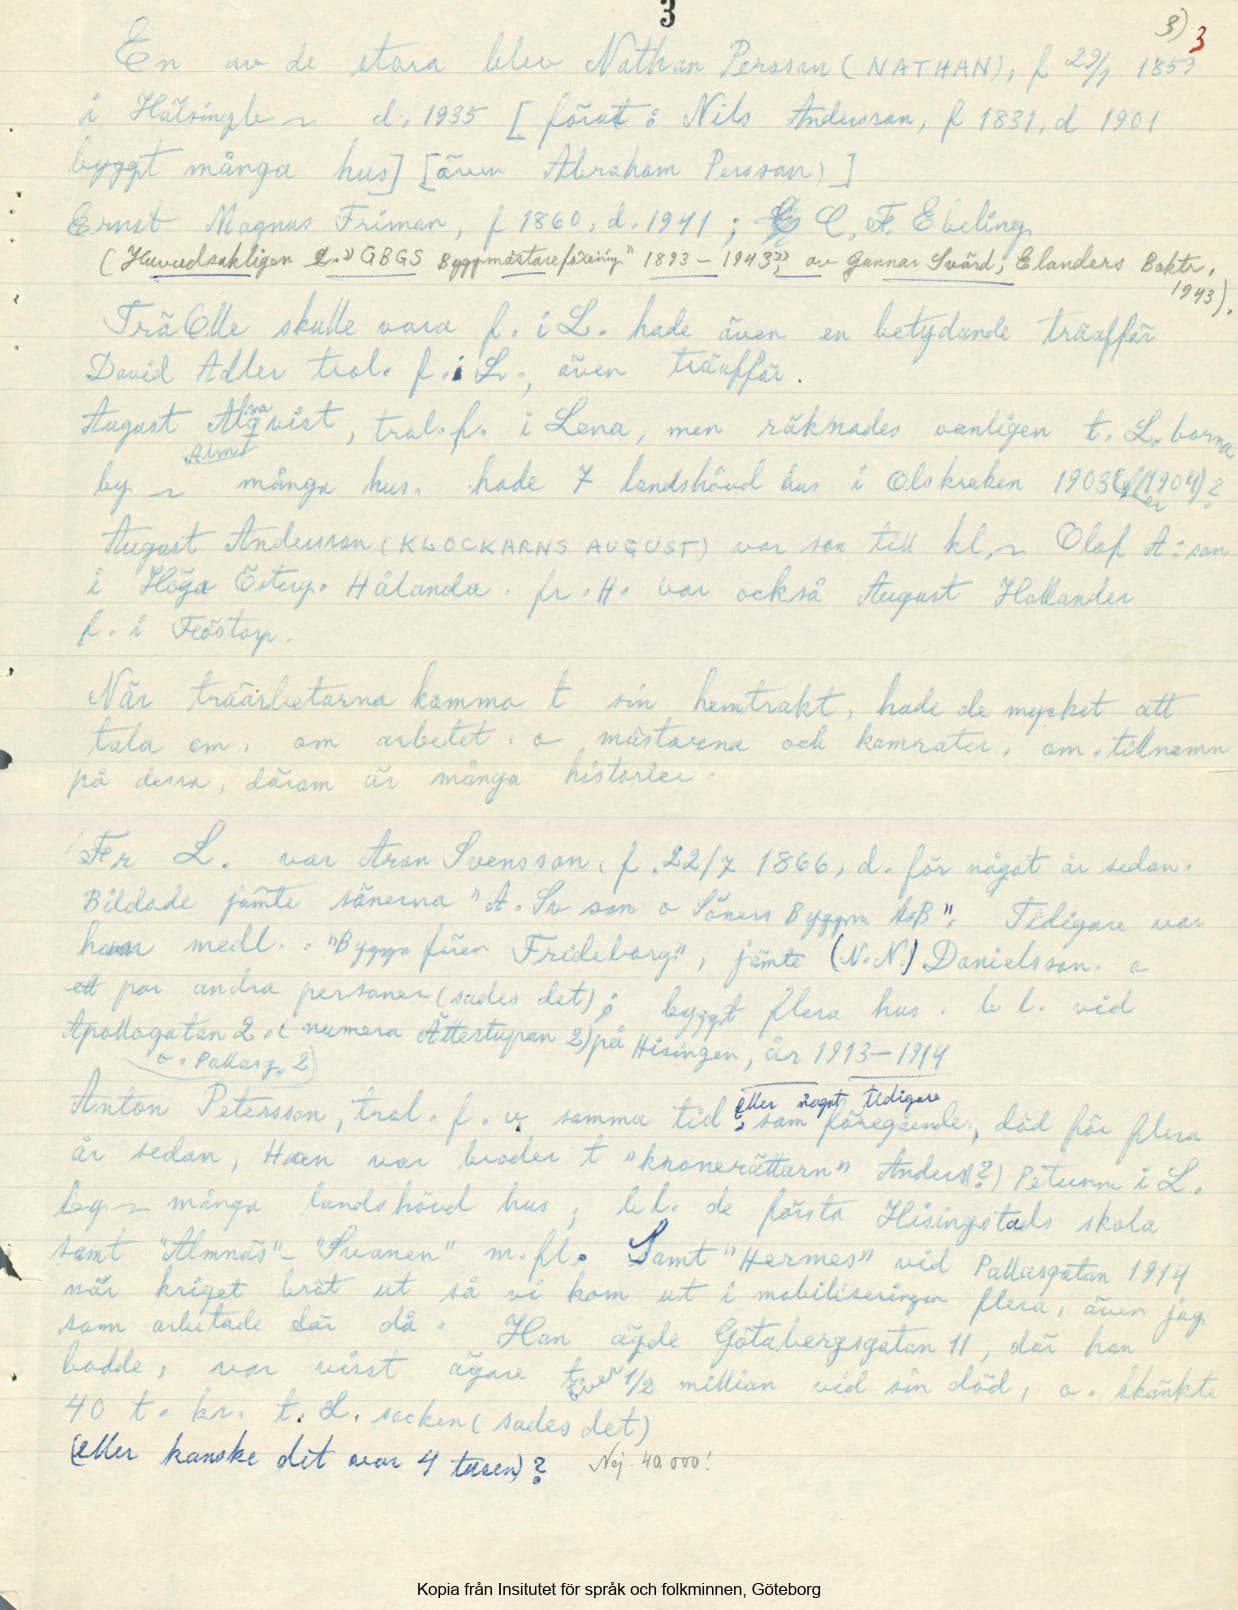 3
3) 3
En av de stora blev Nathan Persson (NATHAN), f 29/1 1859
i Hälsingb ~ d. 1935 [förut: Nils Andersson, f 1831, d 1901
byggt många hus] [även Abraham Persson)]
Ernst Magnus Friman, f 1860, d. 1941; C. F. Ebeling
(Huvudsakligen e. "GBGS Byggmästareförening" 1893-1943", av Gunnar Svärd, Elanders Boktr.
1943).
Trä Olle skulle vara f. i L. hade även en betydande träaffär
David Adler trol. f. i L., även träaffär.
August Almqvist, trol. f. i Lena, men räknades vanligen t. L. borna
Alm
by ~ många hus. hade 7 landshövd hus i Olskroken 1903 (eller 1904)?
August Andersson (KLOCKARNS AUGUST) var son till kl. ~ Olof A:son
i Höga Österg. Hålanda. fr. H. var också August Hollander
f. i
När träarbetarna komma t sin hemtrakt, hade de mycket att
tala om, om arbetet. o mästarna och kamrater. om tillnamn
på dessa, därom är många historier.
Fr L. var Aron Svensson, f. 22/7 1866, d. för något år sedan.
Bildade jämte sönerna "A. Sv son o Söners Byggn A-B". Tidigare var
han medl. i "Byggn fören Frideborg", jämte (N.N.) Danielsson. o
ett par andra personer (sades det); byggt flera hus. bl. vid
Apollogatan 2. (numera Ättestupan 2) på Hisingen, år 1913-1914
o. Pallasg. 2)
eller något tidigare
Anton Petersson, trol. f. v. samma tid, som föregående, död för flera
år sedan, Han var broder t "kronerättarn" Anders(?) Petersson i L.
byg ~ många landshövd hus; bl. de första Hisingstads skola
samt "Almnäs" - "Svanen" m. fl. Samt "Hermes" vid Pallasgatan 1914
när kriget bröt ut så vi kom ut i mobiliseringen flera, även jag
som arbetade där då. Han ägde Götabergsgatan 11, där han
bodde, var visst ägare t över 1/2 million vid sin död, o. skänkte
40 t. kr. t. L. socken (sades det)
(eller kanske det var 4 tusen)? Nej. 40.000!
Kopia från Insitutet för språk och folkminnen, Göteborg